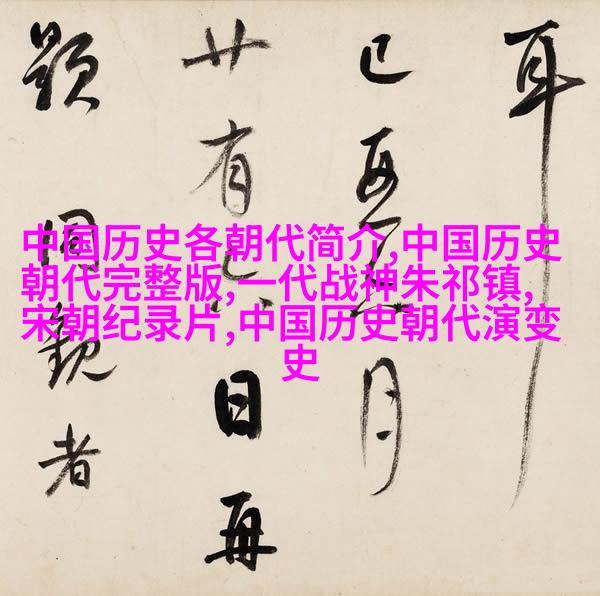 中国历史各朝代简介,中国历史
朝代完整版,一代战神朱祁镇,
宋朝纪录片,中国历史朝代演变
史
耳
已月
廿有日再
題同觀者